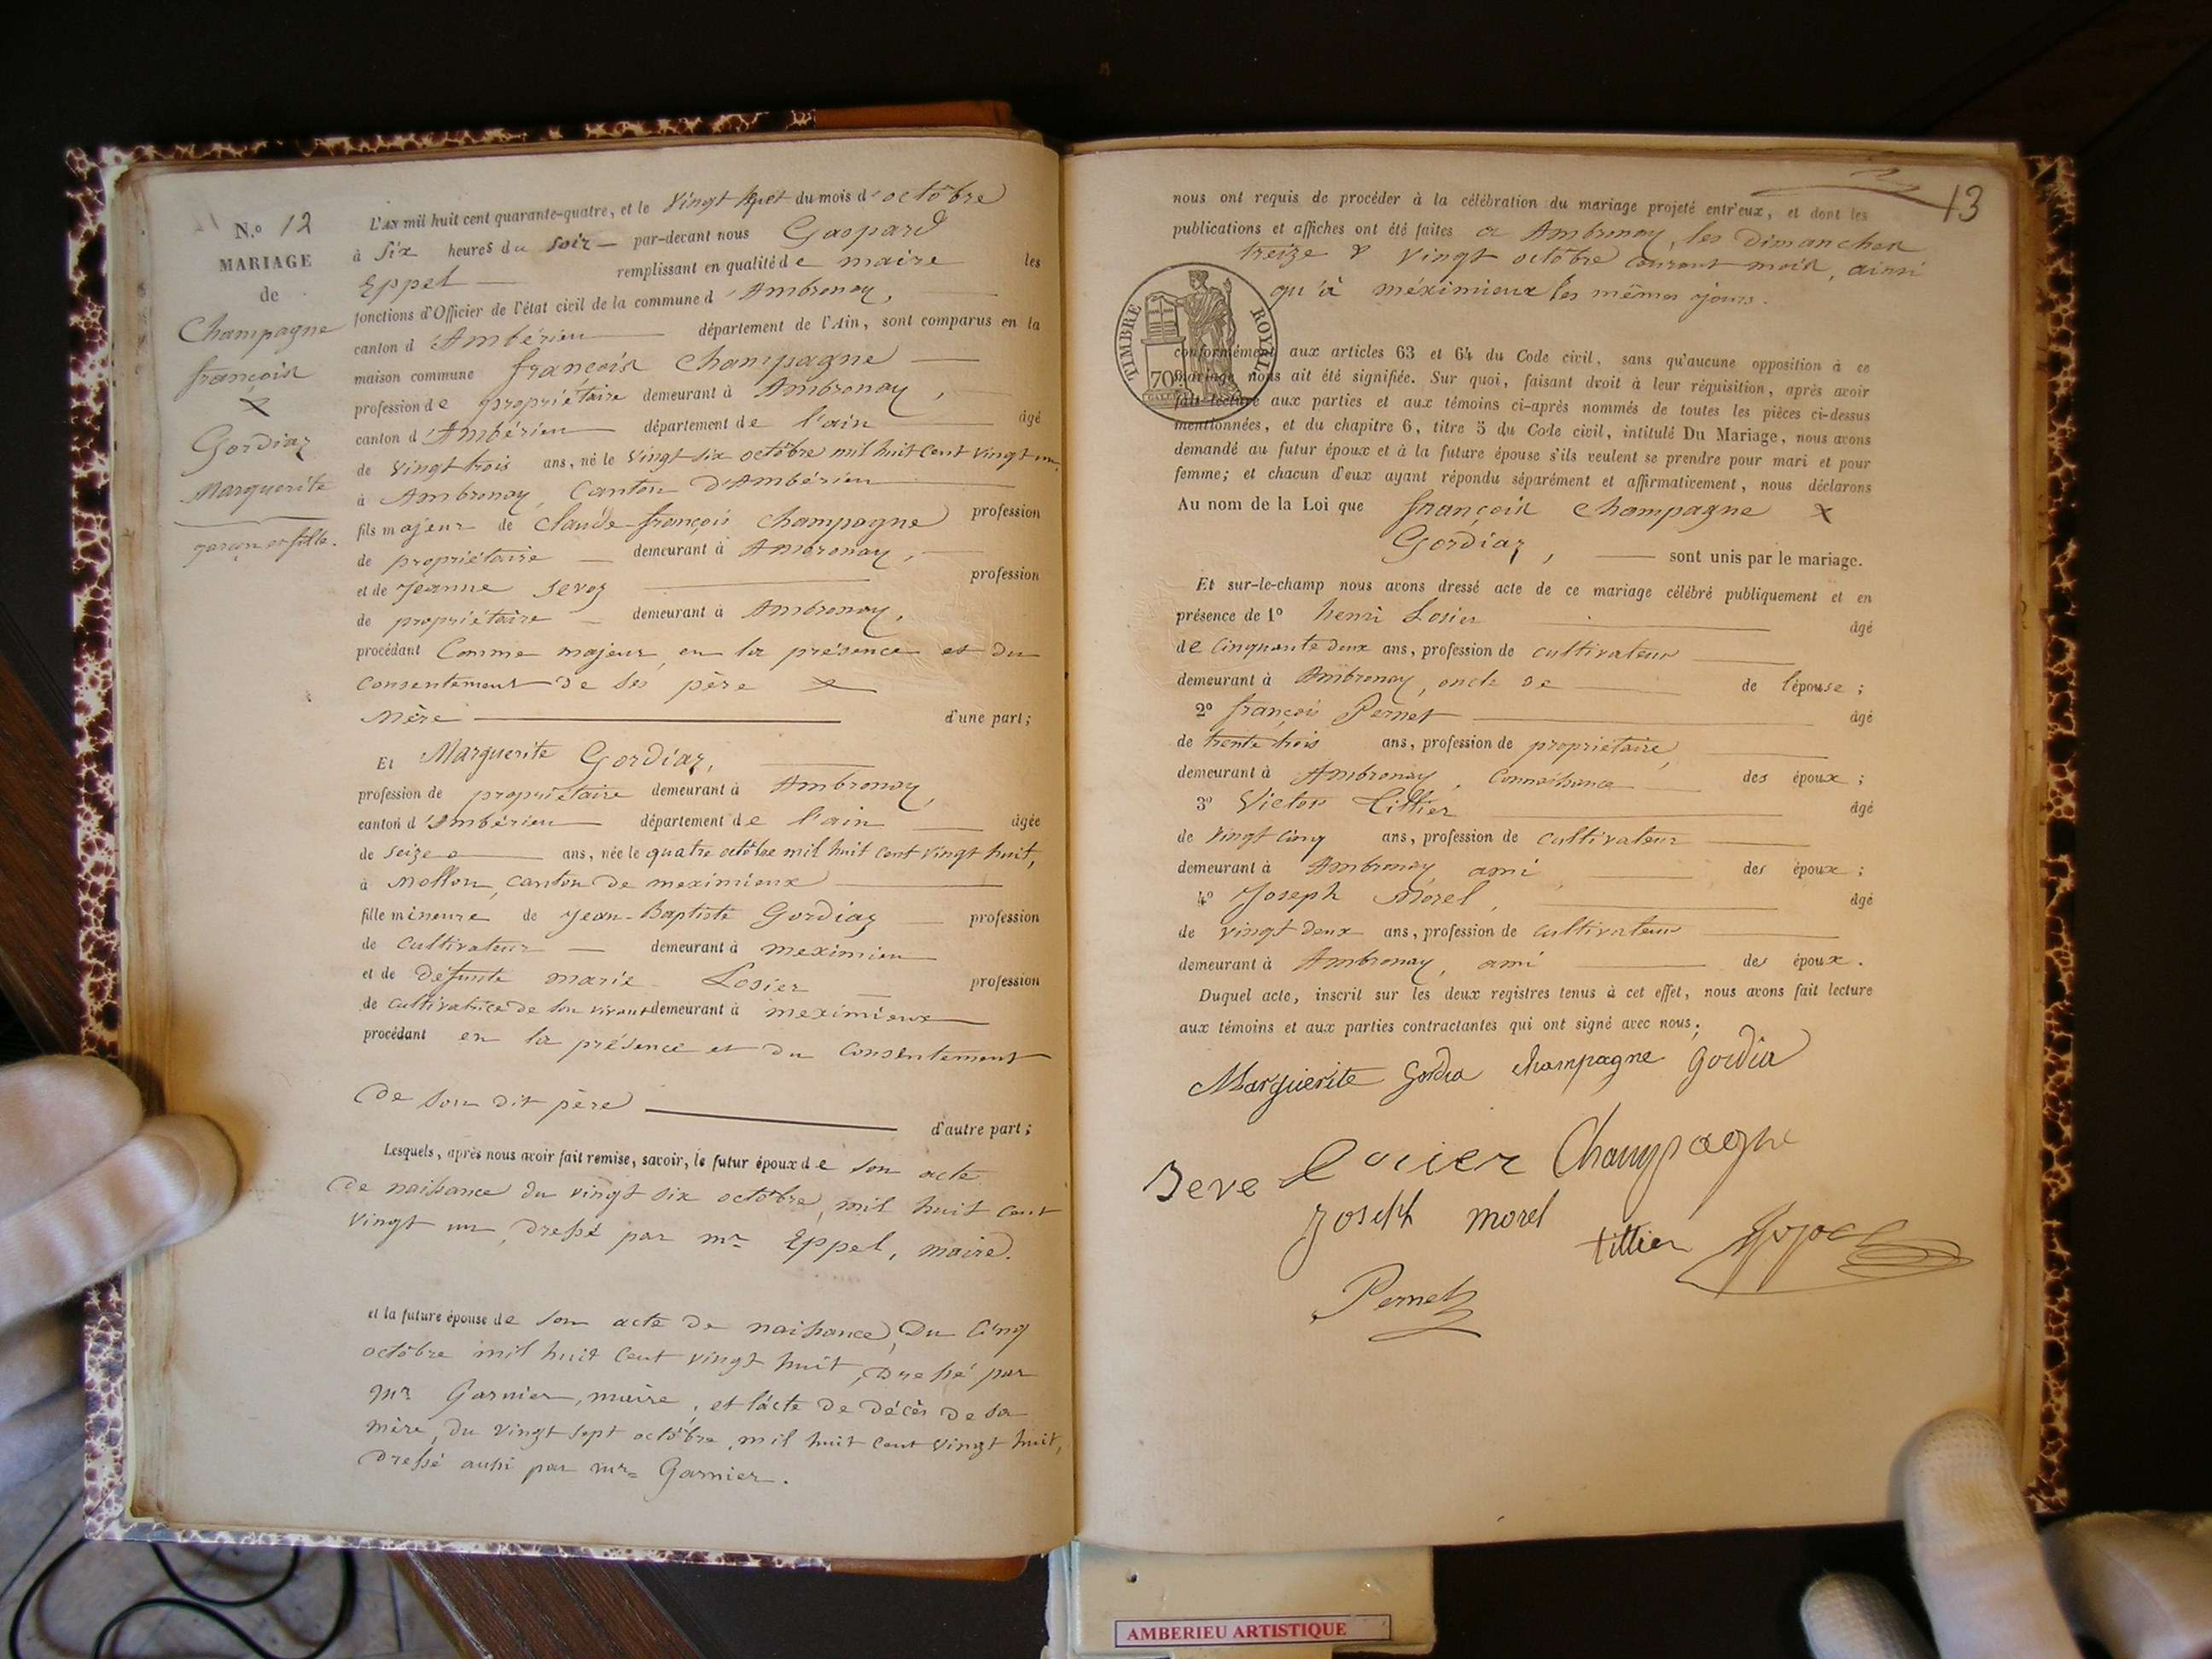 N.º 12
MARIAGE
de
Champagne
françois
&
Gordiaz
Marguerite
garçon et fille.
L'AN mil huit cent quarante-quatre, et le Vingt sept du mois d'octobre
à Six heures du soir par-devant nous Gaspard
Eppel remplissant en qualité de maire les
fonctions d'Officier de l'état civil de la commune d'Ambronay,
canton d'Ambérieu département de l'Ain, sont comparus en la
maison commune françois Champagne
profession de propriétaire demeurant à Ambronay,
canton d'Ambérieu département de l'ain âgé
de vingt trois ans, né le vingt six octobre mil huit cent vingt un,
à Ambronay, Canton d'Ambérieu
fils majeur de Claude-françois Champagne profession
de propriétaire demeurant à Ambronay,
et de Jeanne Sevoz profession
de propriétaire demeurant à Ambronay,
procédant Comme majeur, en la présence et du
consentement de ses père &
mère d'une part;
Et Marguerite Gordiaz,
profession de propriétaire demeurant à Ambronay,
canton d'Ambérieu département de l'ain âgée
de seize ans, née le quatre octobre mil huit cent vingt huit,
à Mollon, canton de meximieux
fille mineure de Jean-Baptiste Gordiaz profession
de cultivateur demeurant à meximieu
et de défunte marie Losier profession
de cultivatrice de son vivant demeurant à meximieux
procédant en la présence et du consentement
de son dit père d'autre part;
Lesquels, après nous avoir fait remise, savoir, le futur époux de son acte
de naissance du vingt six octobre, mil huit cent
vingt un, dressé par mr Eppel, maire.
et la future épouse de son acte de naissance, du cinq
octobre mil huit cent vingt huit, dressé par
mr Garnier, maire, et l'acte de décès de sa
mère, du vingt sept octobre, mil huit cent vingt huit,
dressé aussi par mr Garnier.
13
nous ont requis de procéder à la célébration du mariage projeté entr'eux, et dont les
publications et affiches ont été faites a Ambronay, les dimanches
treize & vingt octobre courant mois, ainsi
qu'à méximieux les mêmes jours.
TIMBRE ROYAL
70
conformément aux articles 63 et 64 du Code civil, sans qu'aucune opposition à ce
mariage nous ait été signifiée. Sur quoi, faisant droit à leur réquisition, après avoir
fait lecture aux parties et aux témoins ci-après nommés de toutes les pièces ci-dessus
mentionnées, et du chapitre 6, titre 5 du Code civil, intitulé Du Mariage, nous avons
demandé au futur époux et à la future épouse s'ils veulent se prendre pour mari et pour
femme; et chacun d'eux ayant répondu séparément et affirmativement, nous déclarons
Au nom de la Loi que françois Champagne &
Gordiaz, sont unis par le mariage.
Et sur-le-champ nous avons dressé acte de ce mariage célébré publiquement et en
présence de 1º henri Losier âgé
de Cinquante deux ans, profession de cultivateur
demeurant à Ambronay, oncle de de l'épouse;
2º françois Pernet âgé
de trente trois ans, profession de propriétaire,
demeurant à Ambronay, Connaissance des époux;
3º Victor Tittier âgé
de vingt cinq ans, profession de cultivateur
demeurant à Ambronay, ami des époux;
4º Joseph Morel, âgé
de vingt deux ans, profession de cultivateur
demeurant à Ambronay, ami des époux.
Duquel acte, inscrit sur les deux registres tenus à cet effet, nous avons fait lecture
aux témoins et aux parties contractantes qui ont signé avec nous.
Marguerite Gordia champagne gordia
Seve Losier Champagne
Joseph morel tittier
Pernet
AMBERIEU ARTISTIQUE